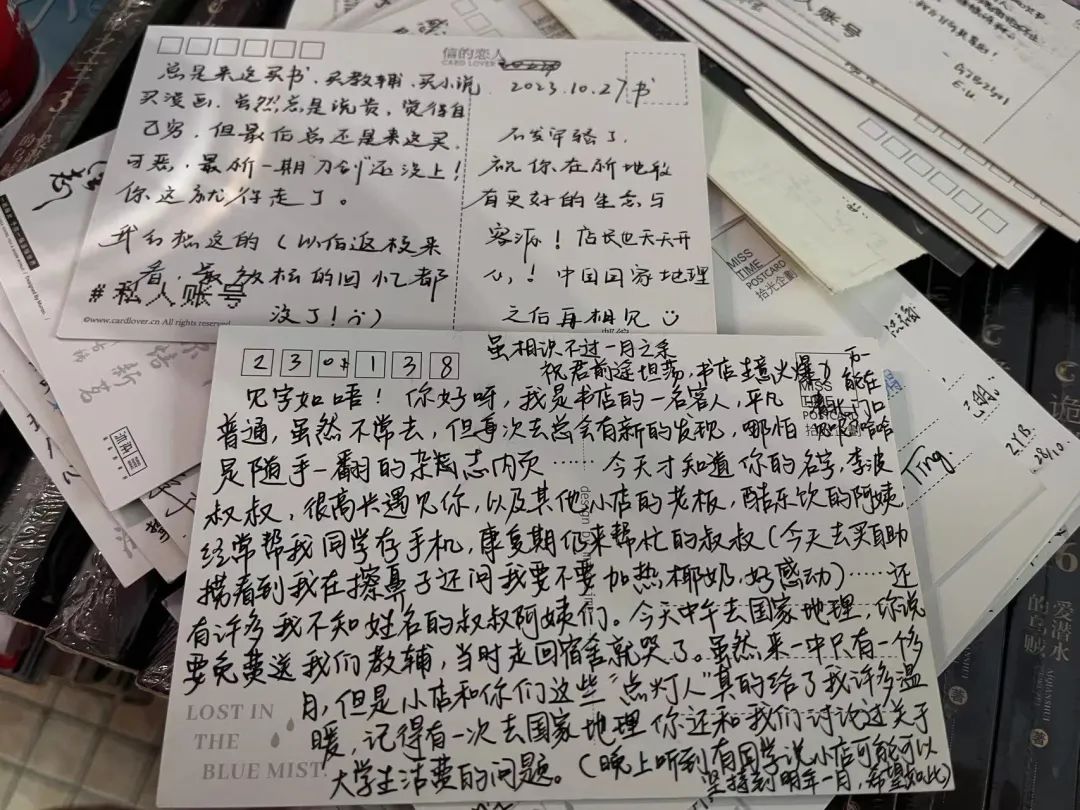 信的恋人
CARD LOVER
总是来这买书、买教辅、买小说
买漫画，虽然总是说贵，觉得自
己穷，但最后总还是来这买，
可恶，最新一期刀剑还没上！
你这就得走了。
我会想这的（以后返校来
看，最放松的回忆都
没了！）
#私人账号
©www.cardlover.cn All rights reserved
2023.10.27书
不发牢骚了，
祝你在新地段
有更好的生意与
客源！店长也天天开
心！中国国家地理
之后再相见
230138
虽相识不过一月之余
祝君前途坦荡，书店生意火爆
万一
能在
门口
见呢哈哈
见字如晤！你好呀，我是书店的一名客人，平凡
普通，虽然不常去，但每次去总会有新的发现，哪怕
是随手一翻的杂志内页……今天才知道你的名字，李波
叔叔，很高兴遇见你，以及其他小店的老板，酷乐饮的阿姨
经常帮我同学存手机，康复期仍来帮忙的叔叔（今天去买自助
捞看到我在擦鼻子还问我要不要加热椰奶，好感动）……还
有许多我不知姓名的叔叔阿姨们。今天中午去国家地理，你说
要免费送我们教辅，当时走回宿舍就哭了。虽然来一中只有一个多
月，但是小店和你们这些“点灯人”真的给了我许多温
暖，记得有一次去国家地理你还和我们讨论过关于
大学生活费的问题。（晚上听到有同学说小店可能可以
坚持到明年一月，希望如此）
LOST IN
THE
BLUE MIST
MISS
TIME
POSTCARD
拾光企劃
MISS
POSTCARD
Ting
人账号
爱潜水
的乌贼